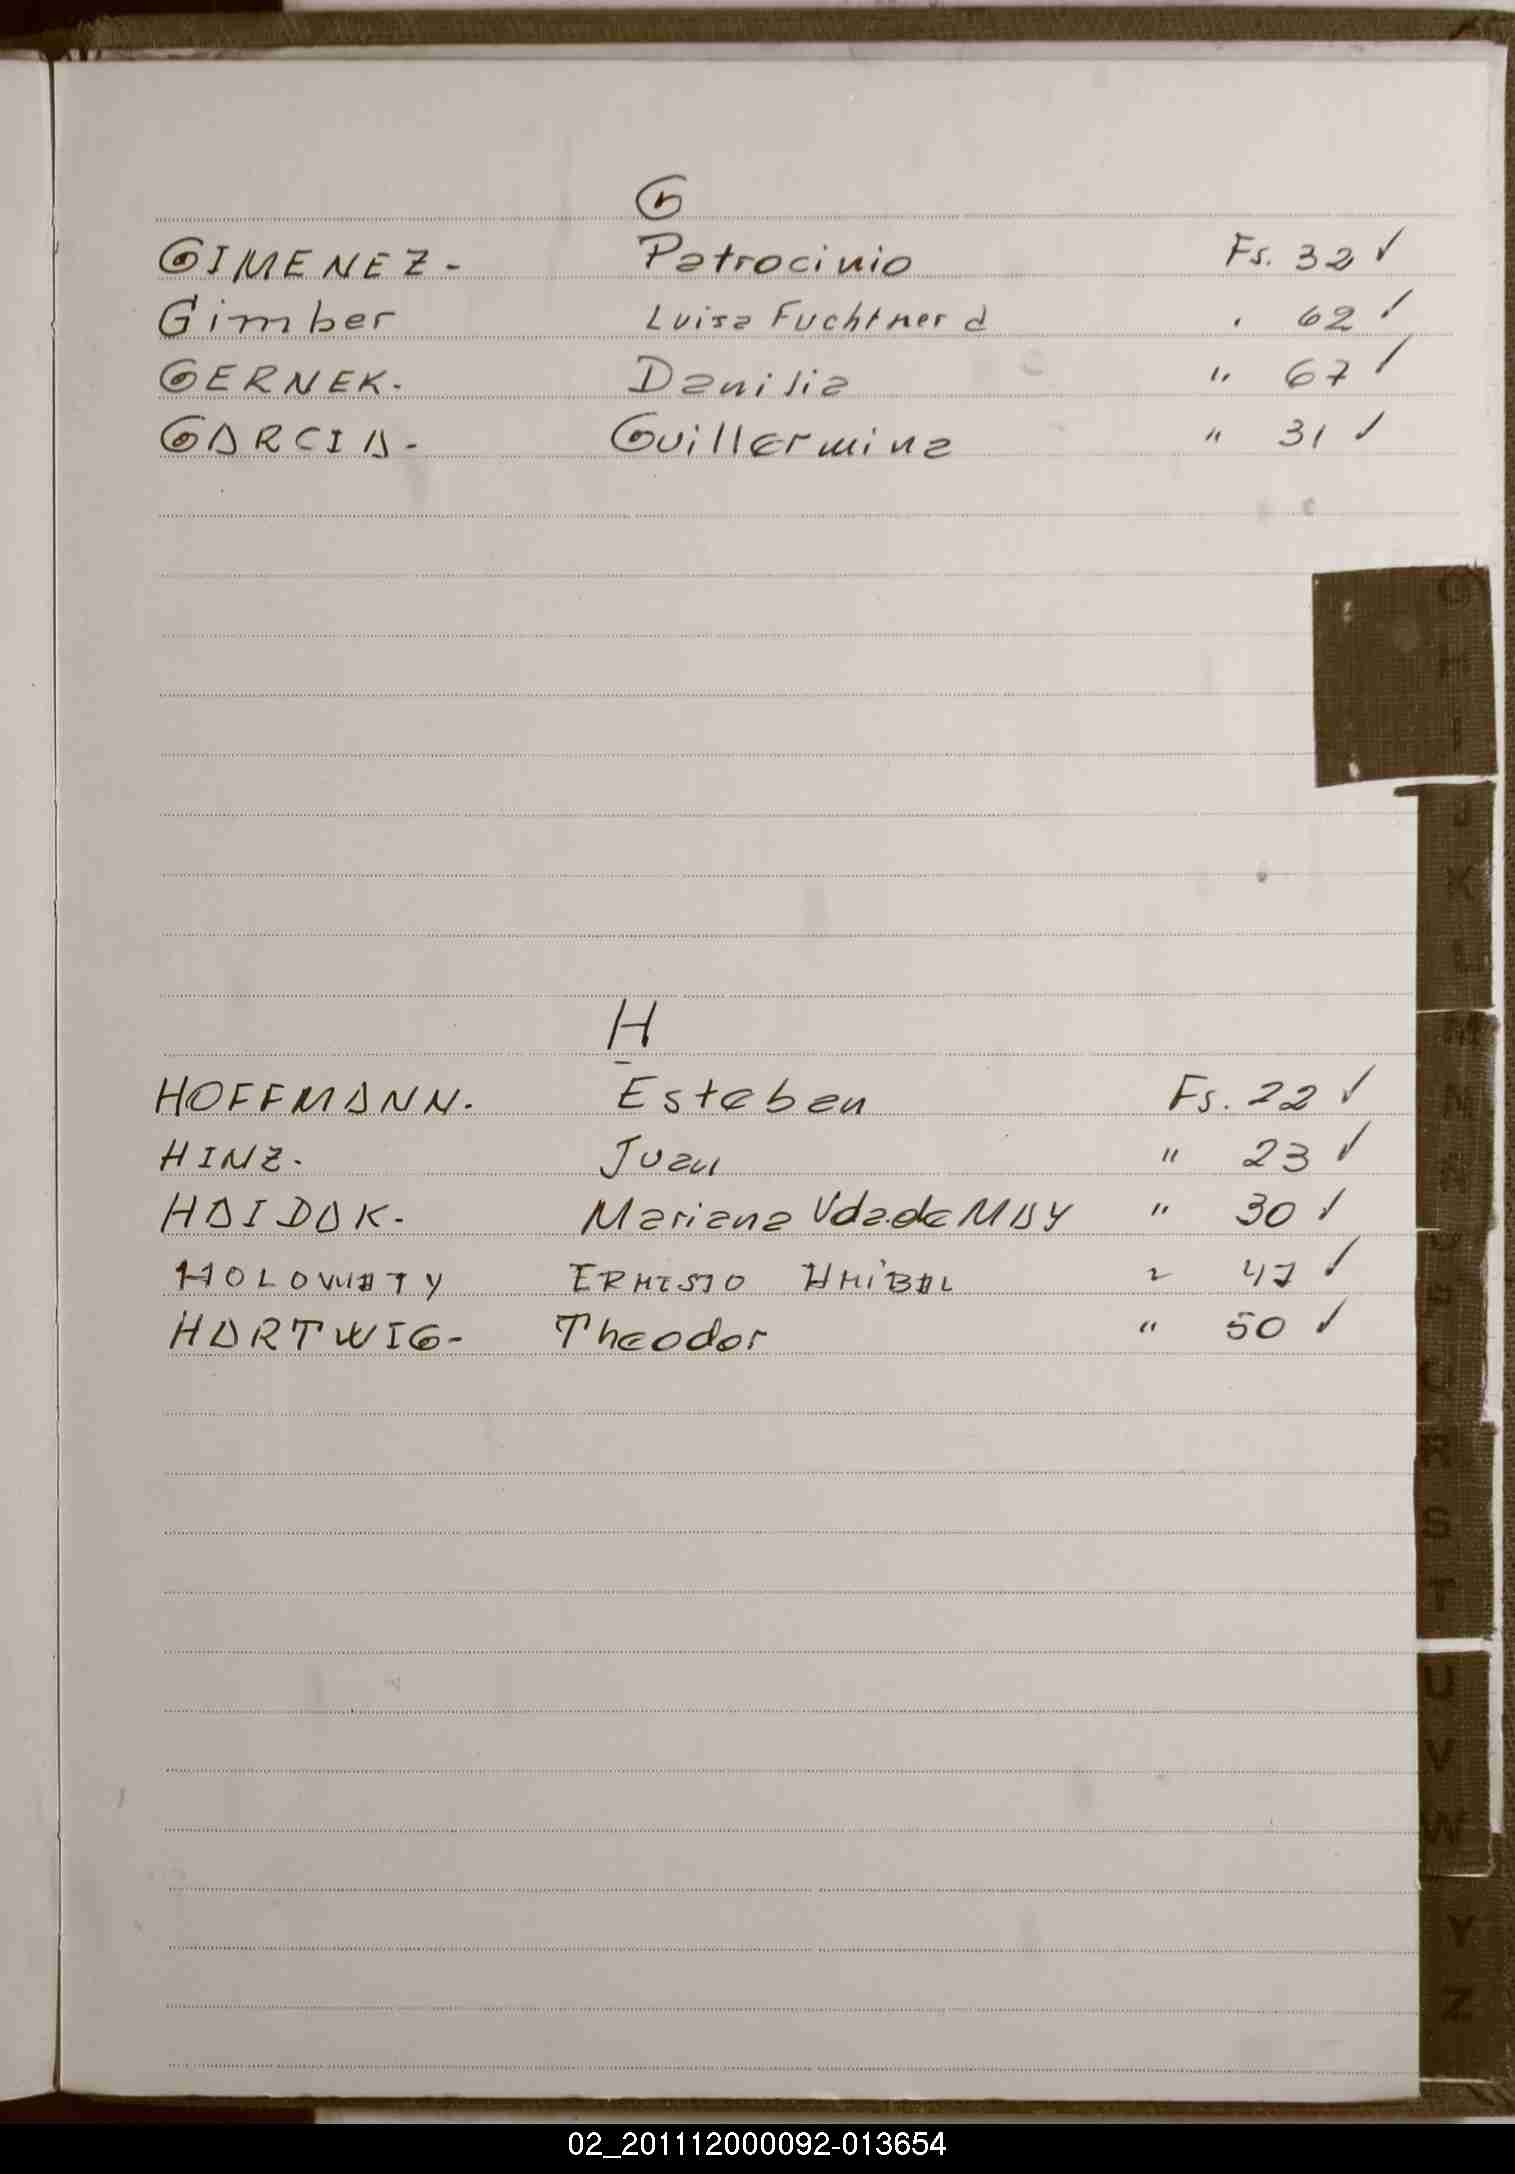 G
GIMENEZ- Patrocinio Fs. 32 ✓
Gimber Luisa Fuchtner d . 62 ✓
GERNEK- Danisia " 67 ✓
GARCIA- Guillermina " 31 ✓
H
HOFFMANN. Esteban Fs. 22 ✓
HINZ- Juan " 23 ✓
HAIDAK- Mariana Vda.de MAY " 30 ✓
HOLOWATY ERNESTO ANiBAL " 47 ✓
HARTWIG- Theodor " 50 ✓
G
H
I
J
K
L
M
N
Ñ
O
P
Q
R
S
T
U
V
W
Y
Z
02_201112000092-013654